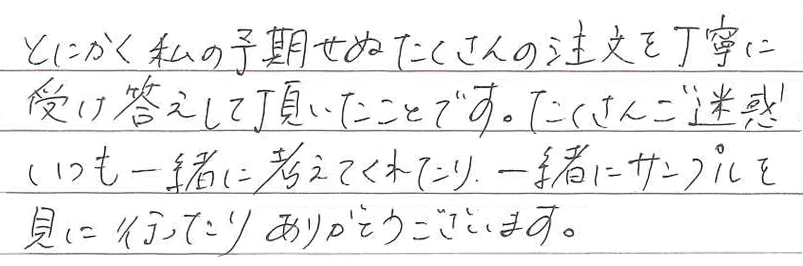 とにかく私の予期せぬたくさんの注文を丁寧に
受け答えして頂いたことです。たくさんご迷惑
いつも一緒に考えてくれたり、一緒にサンプルを
見に行ったりありがとうございます。